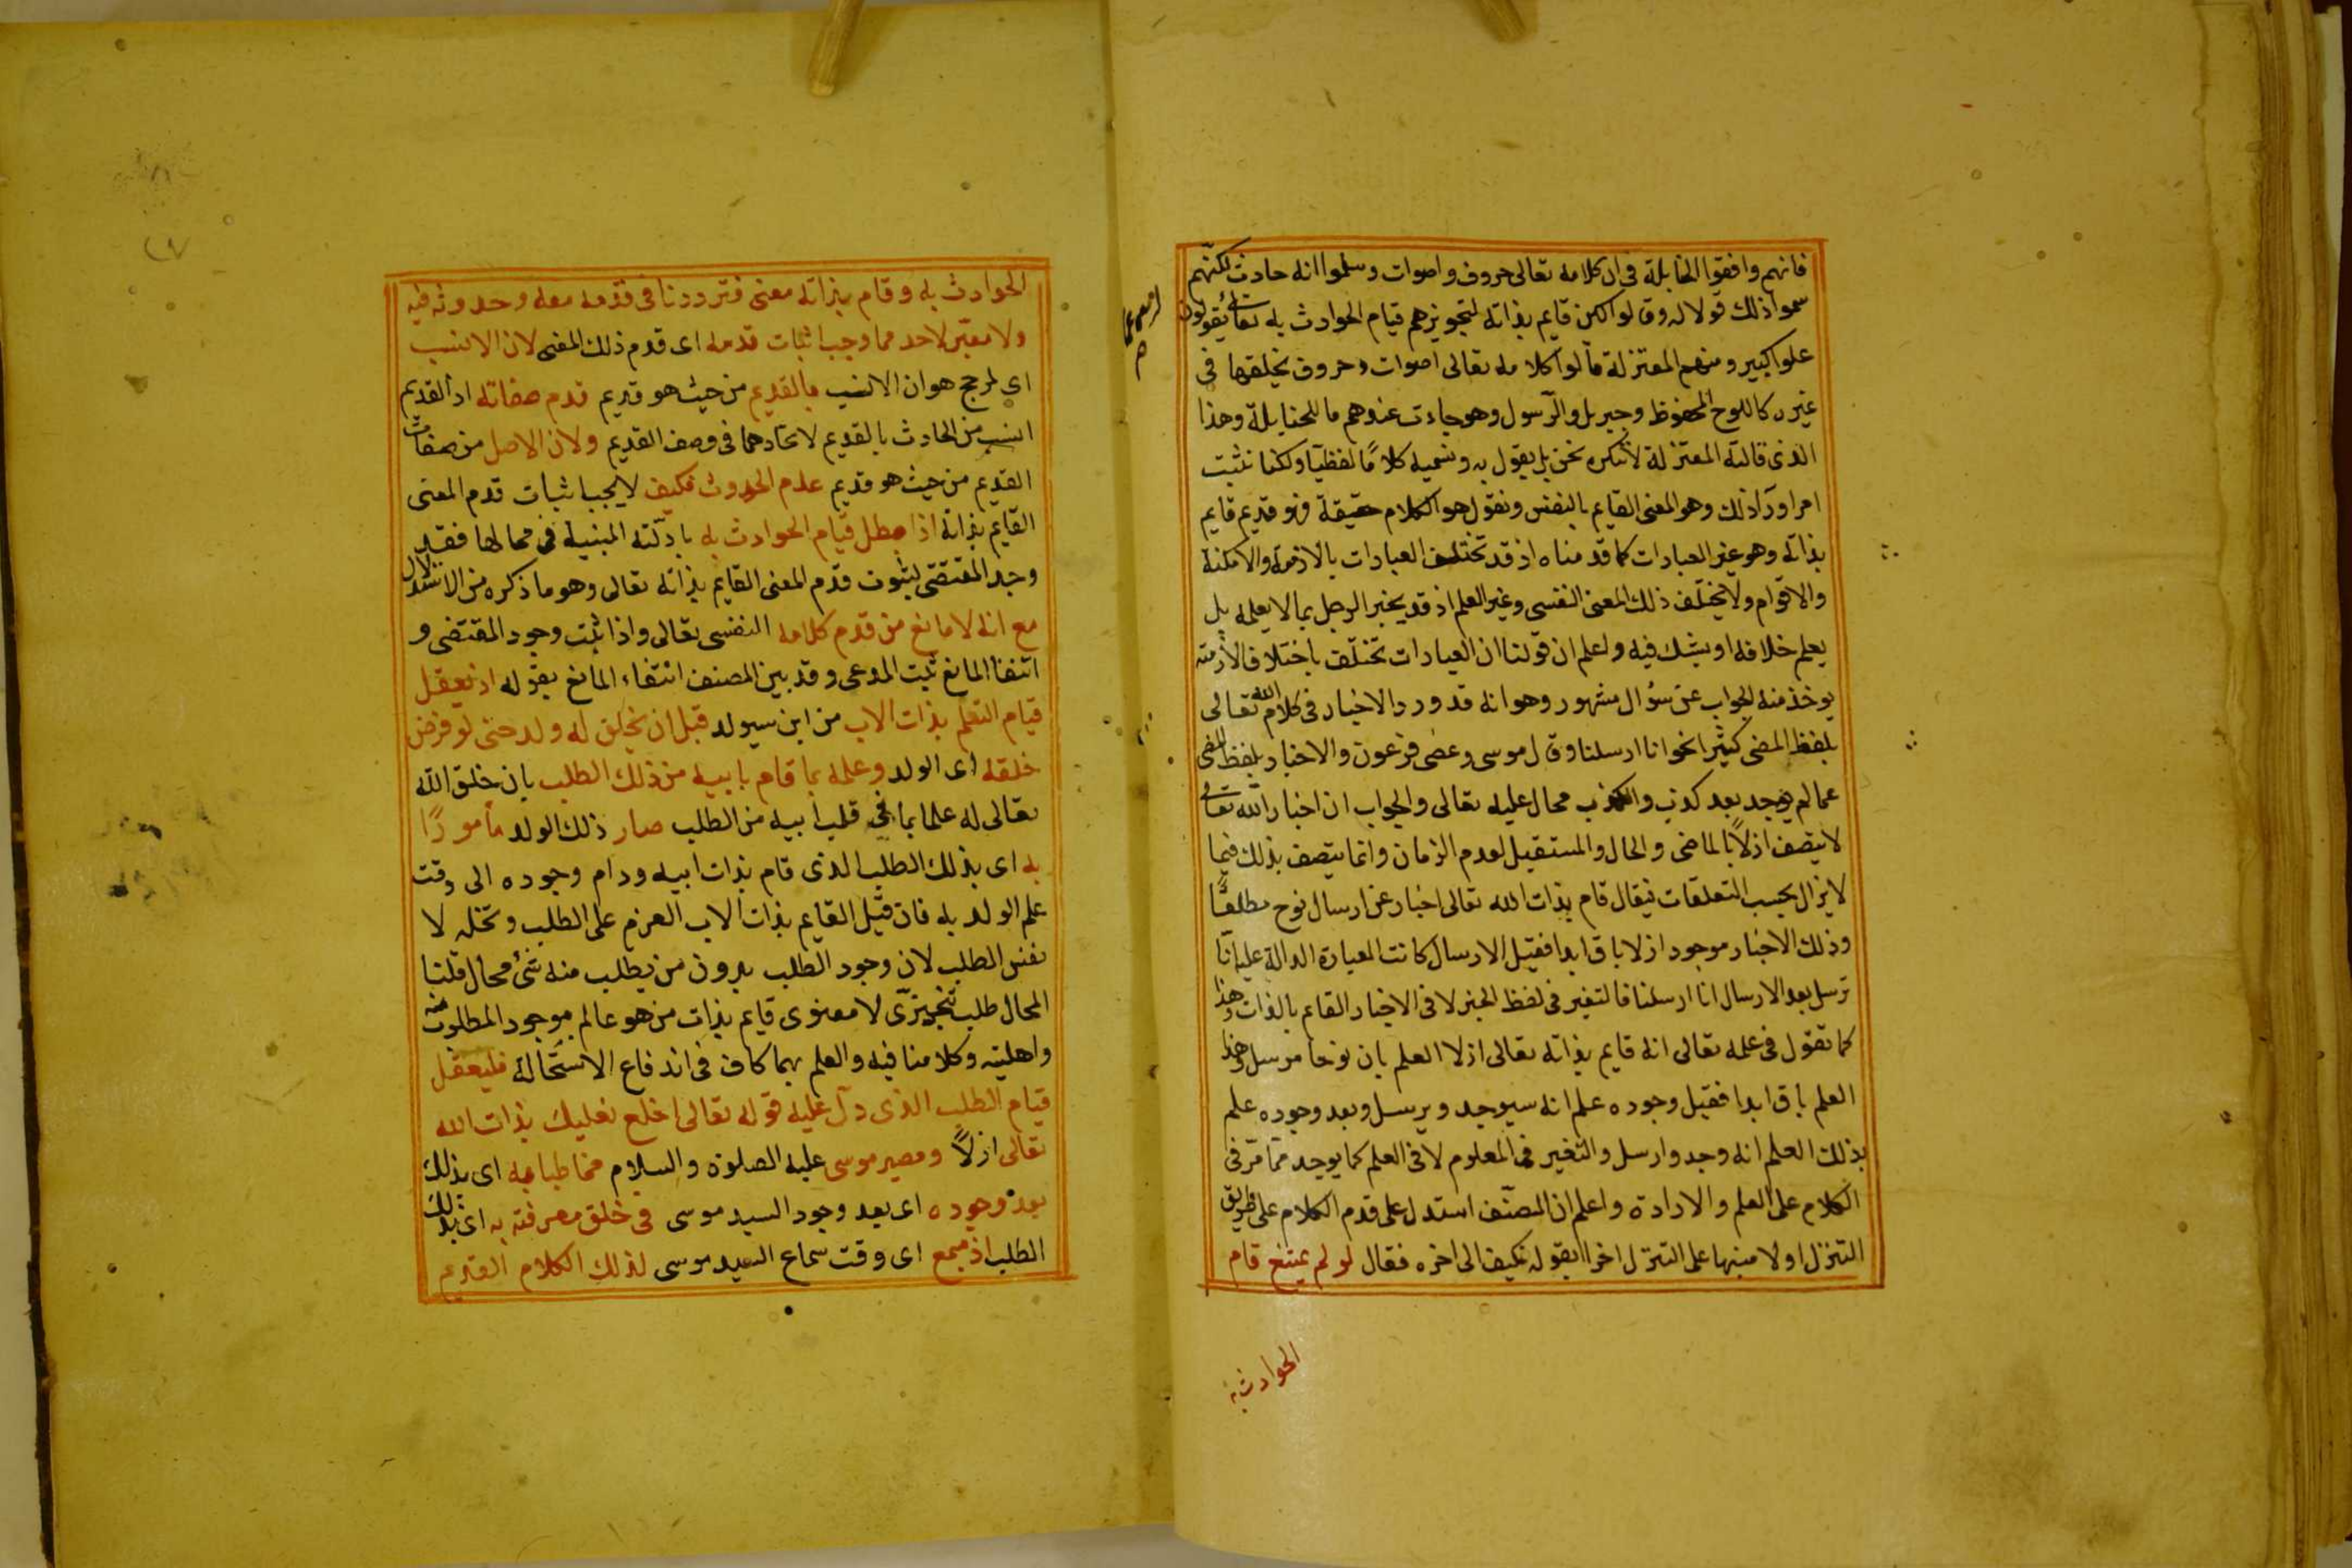 فانهم وافقوا الحنابلة فى ان كلامه تعالى حروف واصوات وسلموا انه حادث لكنهم
سموا ذلك قولا له وقالوا لكن قايم بذاته لتجويزهم قيام الحوادث به تعالى يقولون
علوا كبير ومنهم المعتزلة قالوا كلامه تعالى اصوات وحروف يخلقها فى
غيره كاللوح المحفوظ وجبريل والرسول وهو حادث عندهم ما للحنابلة وهذا
الذى قالته المعتزلة لا ننكره نحن بل نقول به ونسميه كلامًا لفظيًا ولكنا نثبت
امرا ورآ ذلك وهو المعنى القايم بالنفس ونقول هو الكلام حقيقة فهو قديم قايم
بذاته وهو غير العبارات كما قدمناه اذ قد تختلف العبارات بالازمنة والامكنة
والاقوام ولا يختلف ذلك المعنى النفسى وغير العلم اذ قد يخبر الرجل بما لا يعلمه بل
يعلم خلافه او يشك فيه واعلم ان قولنا ان العبارات تختلف باختلاف الازمنة
يوخذ منه الجواب عن سؤال مشهور وهو انه قد ورد الاخبار فى كلام الله تعالى
بلفظ المضى كثيرا نحو انا ارسلنا وقال موسى وعصى فرعون والاخبار بلفظ المضى
عما لم يوجد بعد كذب والكذب محال عليه تعالى والجواب ان اخبار الله تعالى
لا يتصف ازلاً بالماضى والحال والمستقبل لعدم الزمان وانما يتصف بذلك فيما
لا يزال بحسب التعلقات فيقال قام بذات الله تعالى اخبار عن ارسال نوح مطلقًا
وذلك الاخبار موجود ازلا باق ابدا فقبل الارسال كانت العبارة الدالة عليه انا
نرسل بعد الارسال انا ارسلنا فالتغير فى لفظ الخبر لا فى الاخبار القايم بالذات وهذا
كما تقول فى علمه تعالى انه قايم بذاته تعالى ازلا العلم بان نوحا مرسل وهذا
العلم باق ابدا فقبل وجوده علم انه سيوجد ويرسل وبعد وجوده علم
بذلك العلم انه وجد وارسل والتغير فى المعلوم لا فى العلم كما يوجد مما مر فى
الكلام على العلم والارادة واعلم ان المصنف استدل على قدم الكلام على طريق
التنزل اولا منبها على التنزل اخرا بقوله فكيف الى اخره فقال لو لم يمتنع قام
الحوادث به
الحوادث به وقام بذاته معنى فترددنا فى قدمه معه وحدوثه فيه
ولا معيّن لاحدهما وجب اثبات قدمه اى قدم ذلك المعنى لان الانسب
اى لمرجح هو ان الانسب بالقديم من حيث هو قديم قدم صفاته اذ القديم
انسب من الحادث بالقديم لاتحادهما فى وصف القديم ولان الاصل من صفات
القديم من حيث هو قديم عدم الحدوث فكيف لا يجب اثبات قدم المعنى
القايم بذاته اذا بطل قيام الحوادث به بادلّته المبنية فى محالها فقد
وجد المقتضى لثبوت قدم المعنى القايم بذاته تعالى وهو ما ذكره من الاستدلال
مع انه لا مانع من قدم كلامه النفسى تعالى واذا ثبت وجود المقتضى و
انتفا المانع ثبت المدعى وقد بين المصنف انتفاء المانع بقوله اذ يعقل
قيام التعلم بذات الاب من ابن سيولد قبل ان يخلق له ولد حتى لو فرض
خلقه اى الولد وعلمه بما قام بابيه من ذلك الطلب بان خلق الله
تعالى له علما بما فى قلب ابيه من الطلب صار ذلك الولد مأمورًا
به اى بذلك الطلب الذى قام بذات ابيه ودام وجوده الى وقت
علم الولد به فان قيل القايم بذات الاب العزم على الطلب وتخله لا
نفس الطلب لان وجود الطلب بدون من يطلب منه شئ محال قلنا
المحال طلب تنجيزى لا معنوى قايم بذات من هو عالم بوجود المطلوب منه
واهليته وكلامنا فيه والعلم بهما كاف فى اندفاع الاستحالة فليعقل
قيام الطلب الذى دل عليه قوله تعالى اخلع نعليك بذات الله
تعالى ازلاً ومصير موسى عليه الصلوة والسلام مخاطبا به اى بذلك
بعد وجوده اى بعد وجود السيد موسى فى خلق معرفته به اى بذلك
الطلب اذ سمع اى وقت سماع السيد موسى لذلك الكلام القديم